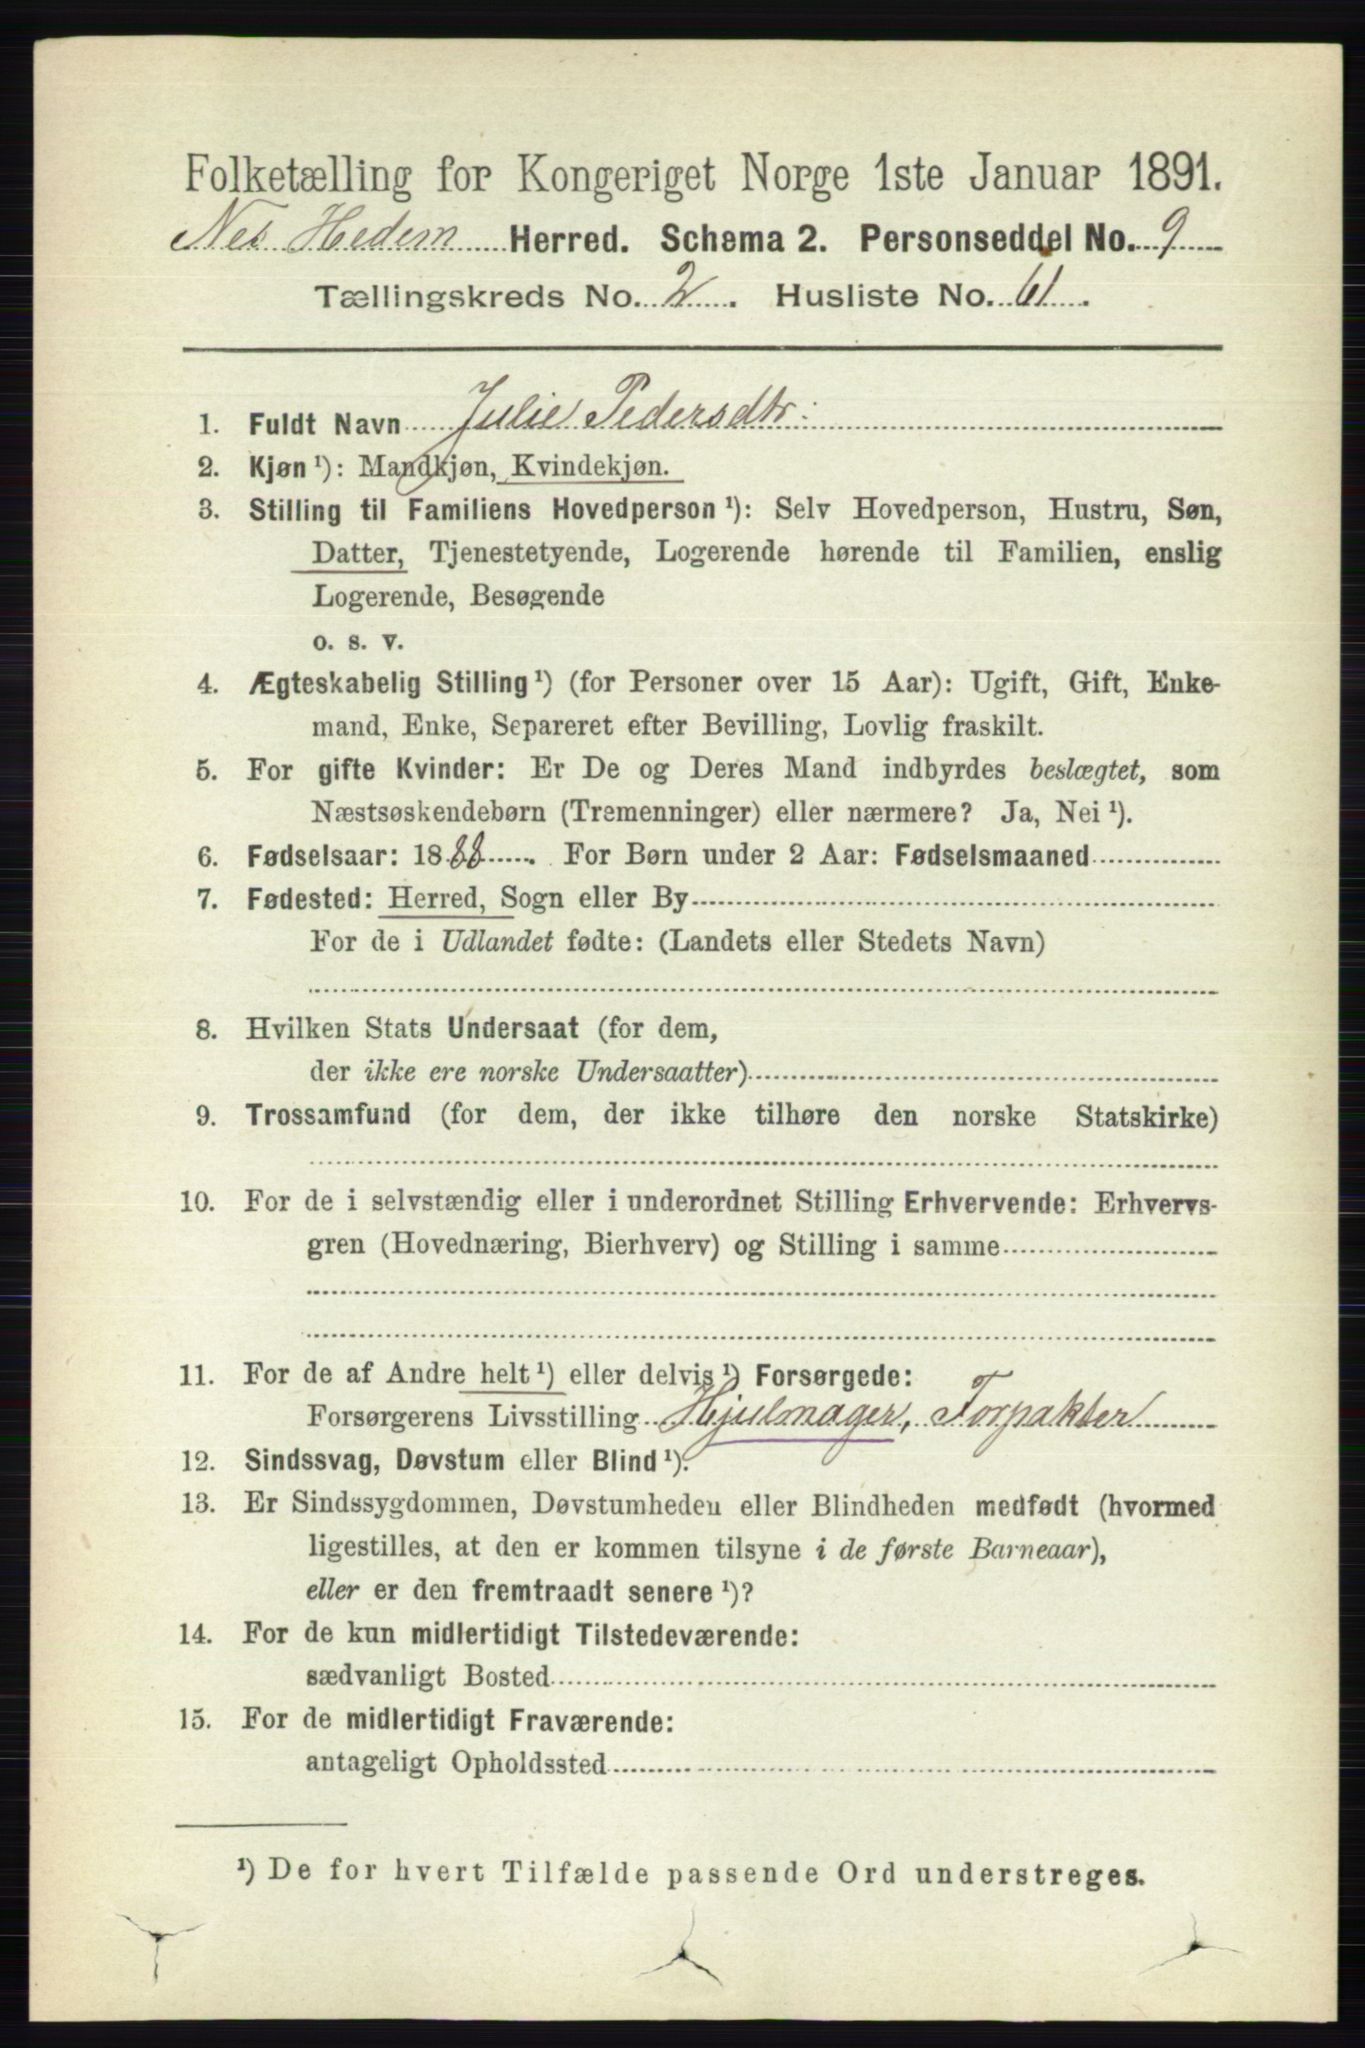 Folketælling for Kongeriget Norge 1ste Januar 1891.
Nes Hedem Herred. Schema 2. Personseddel No. 9
Tællingskreds No. 2. Husliste No. 61.
1. Fuldt Navn Julie Pedersdtr:
2. Kjøn ¹): Mandkjøn, Kvindekjøn.
3. Stilling til Familiens Hovedperson ¹): Selv Hovedperson, Hustru, Søn,
Datter, Tjenestetyende, Logerende hørende til Familien, enslig
Logerende, Besøgende
o. s. v.
4. Ægteskabelig Stilling ¹) (for Personer over 15 Aar): Ugift, Gift, Enke-
mand, Enke, Separeret efter Bevilling, Lovlig fraskilt.
5. For gifte Kvinder: Er De og Deres Mand indbyrdes beslægtet, som
Næstsøskendebørn (Tremenninger) eller nærmere? Ja, Nei ¹).
6. Fødselsaar: 1888. For Børn under 2 Aar: Fødselsmaaned
7. Fødested: Herred, Sogn eller By
For de i Udlandet fødte: (Landets eller Stedets Navn)
8. Hvilken Stats Undersaat (for dem,
der ikke ere norske Undersaatter)
9. Trossamfund (for dem, der ikke tilhøre den norske Statskirke)
10. For de i selvstændig eller i underordnet Stilling Erhvervende: Erhvervs-
gren (Hovednæring, Bierhverv) og Stilling i samme
11. For de af Andre helt ¹) eller delvis ¹) Forsørgede:
Forsørgerens Livsstilling Hjulmager, Forpakter
12. Sindssvag, Døvstum eller Blind ¹).
13. Er Sindssygdommen, Døvstumheden eller Blindheden medfødt (hvormed
ligestilles, at den er kommen tilsyne i de første Barneaar),
eller er den fremtraadt senere ¹)?
14. For de kun midlertidigt Tilstedeværende:
sædvanligt Bosted
15. For de midlertidigt Fraværende:
antageligt Opholdssted
¹) De for hvert Tilfælde passende Ord understreges.